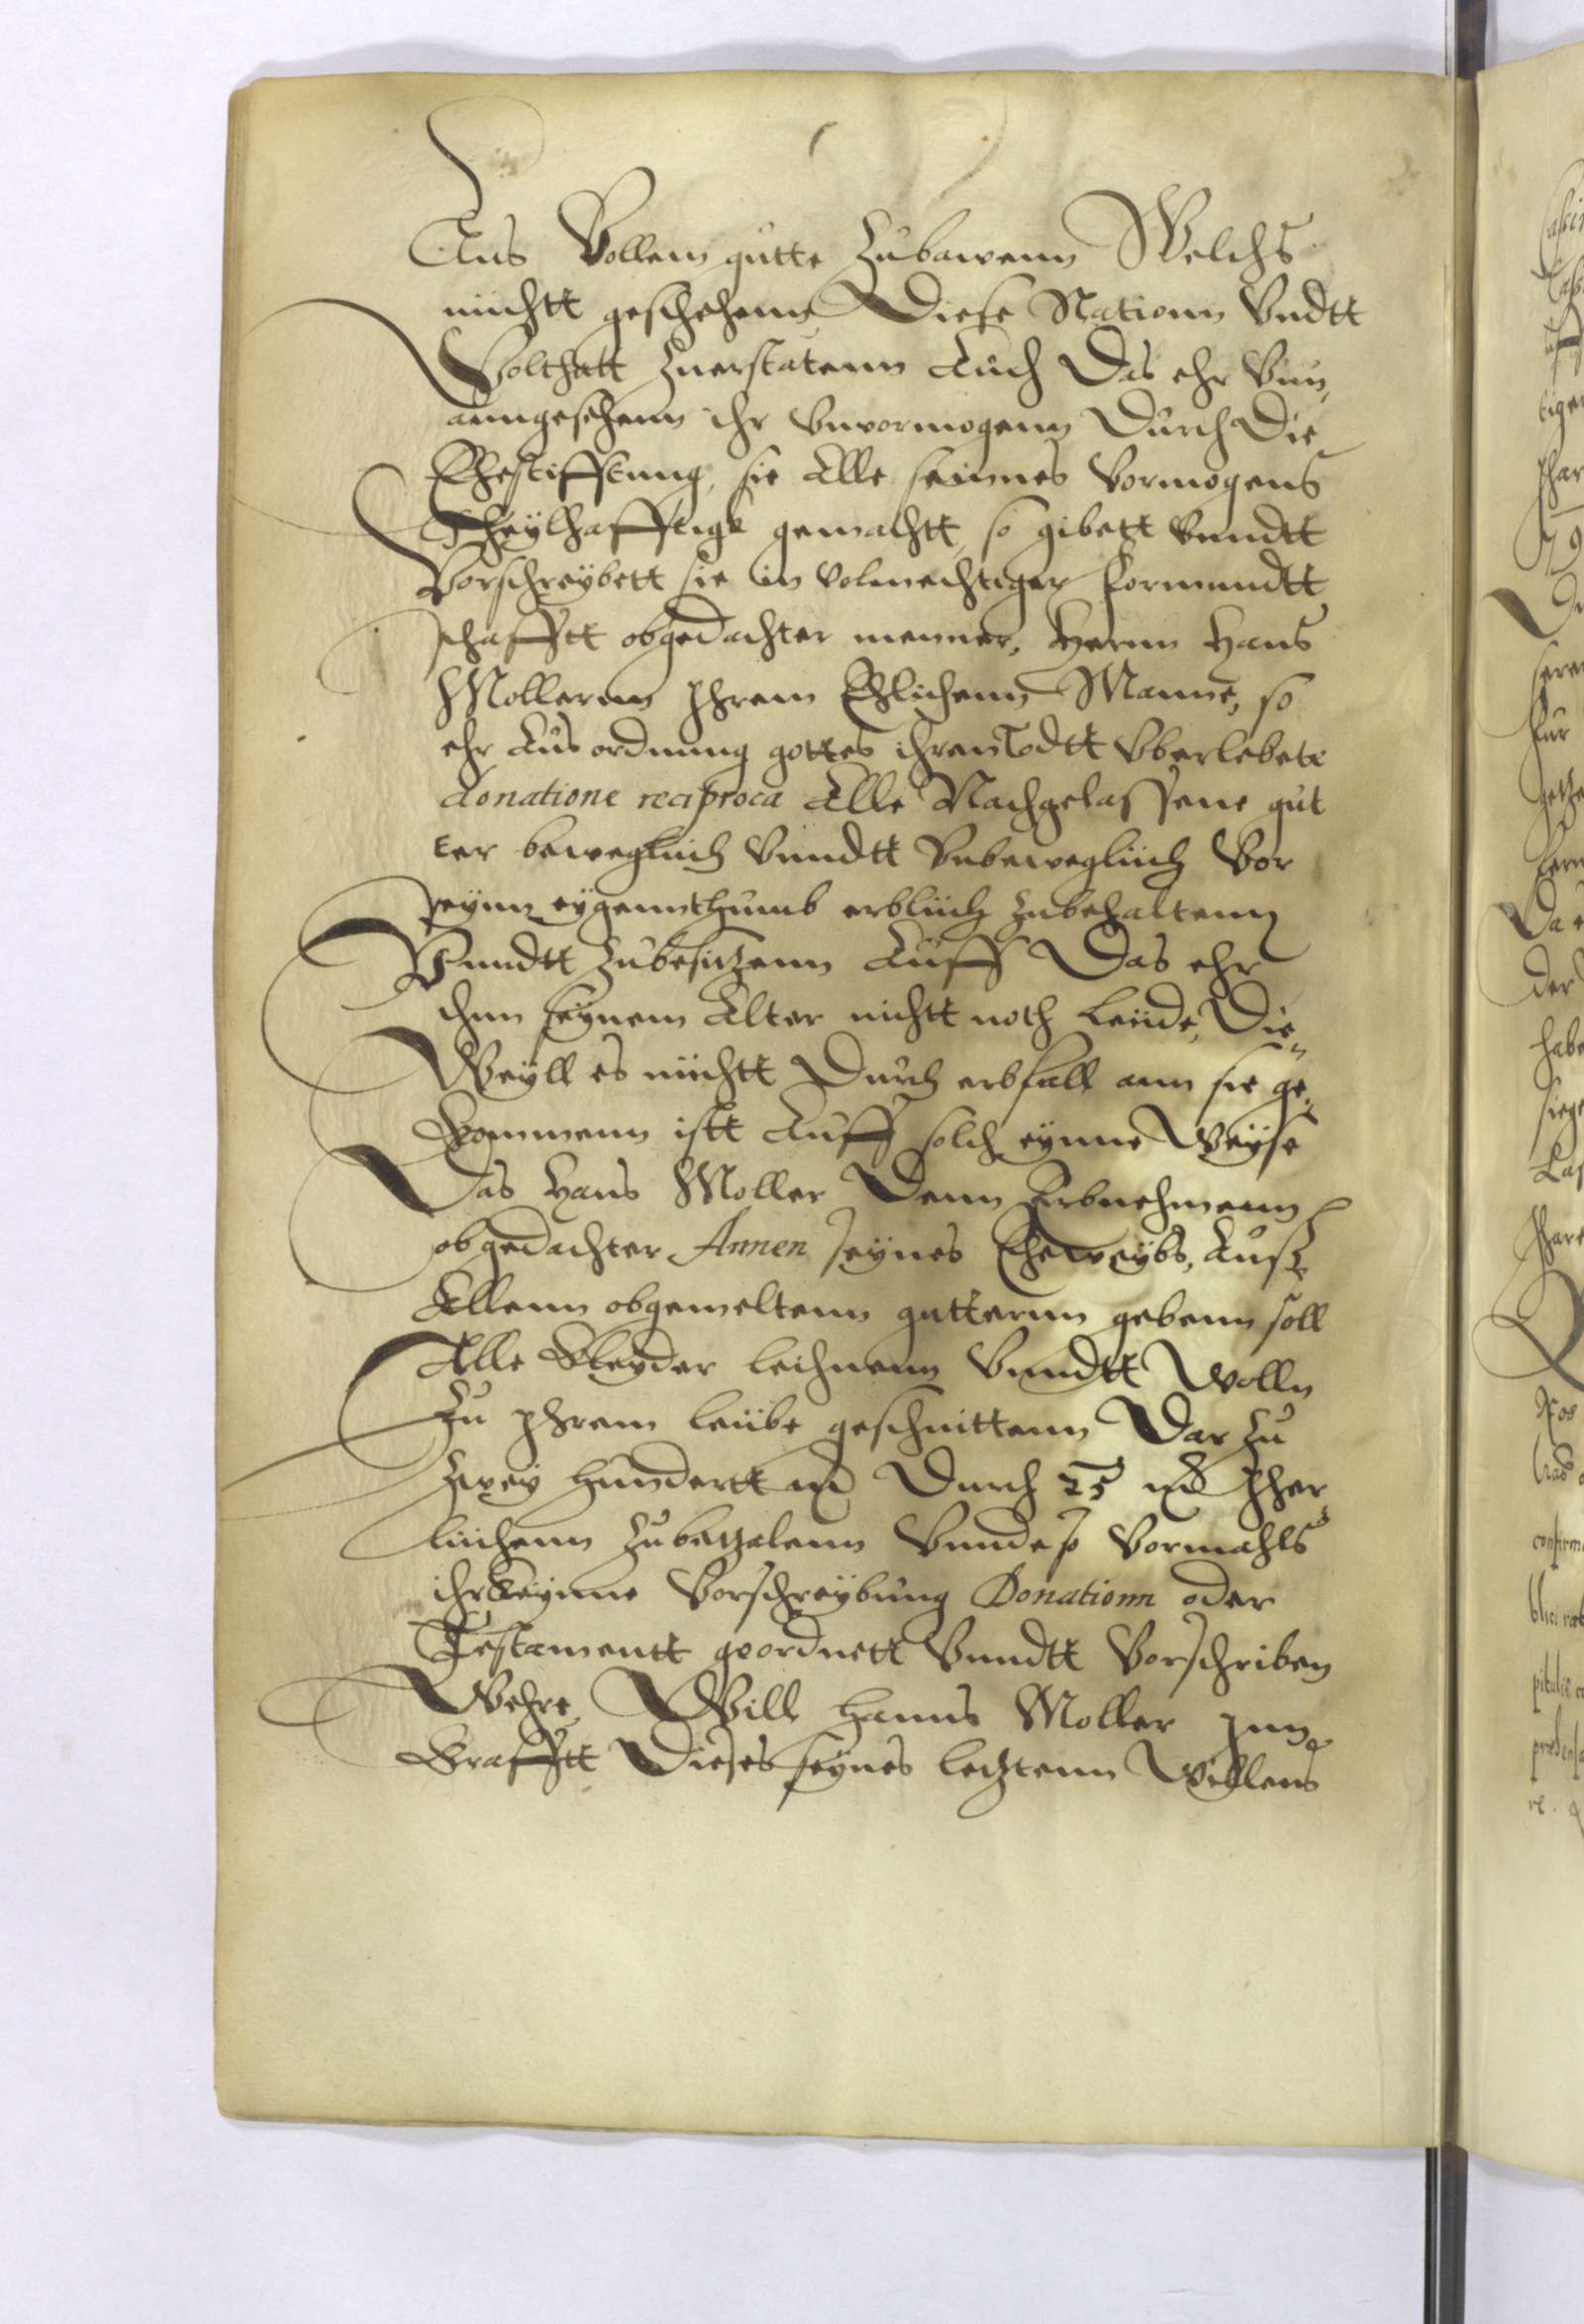 Aus Vollem gutte Zubawenn Welchs
nüchtt geschehenn Diese Nationn Vndtt
Wolthatt Zuerstatenn Auch Das ehr Vnn,
anngesehenn ihr Vnvormogenn Durch Die
Ehestifftung, sie Alle seinnes Vormogens
Theylhafftigk gemachtt, so gibett Vnndtt
Vorschreybett sie in volmechtiger formundtt
schafftt obgedachter menner, Herrn Hans
Mollernn Ihrem Ehlichenn Manne, so
ehr Aus ordnung gottes ihren Todtt Vberlebete
donatione reciproca Alle Nachgelassene gut
ter beweglich Vnndtt Vnbeweglich Vor
seynn eygennthumb erblich Zubehaltenn
Vnndtt Zubesitzenn Auff Das ehr
ihnn seynem Alter nichtt noth leide, Die„
Weyll es nüchtt Durch erbfall ann sie ge„
kommenn istt Auff solch eynne Weyse
Das Hans Moller Denn Erbnehmenn
obgedachter Annen seynes Eheweybs, Ausz
Allenn obgemeltenn guetternn gebenn soll
Alle Kleyder leihnenn Vnndtt Wolln
Zu Ihrem leibe geschnittenn Dar Zu
Zwey hundertt m Durch 25 m Jher
lichenn Zubetzalenn Vnnd so Vormahls
ihr keynne Vorschreybung Donationn oder
Testamentt geordnett Vnndtt Vorschriben
Wehre, Will Hanns Moller Inn
Krafftt Dieses seynes letztenn Willens